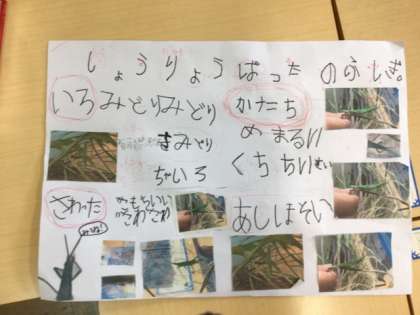 しょうりょうばったのふしぎ。
いろ みどりみどり
きみどり
ちゃいろ
かたち
め まるい
くち ちいさい
あし ほそい
さわった
きもちいい
さわさわ